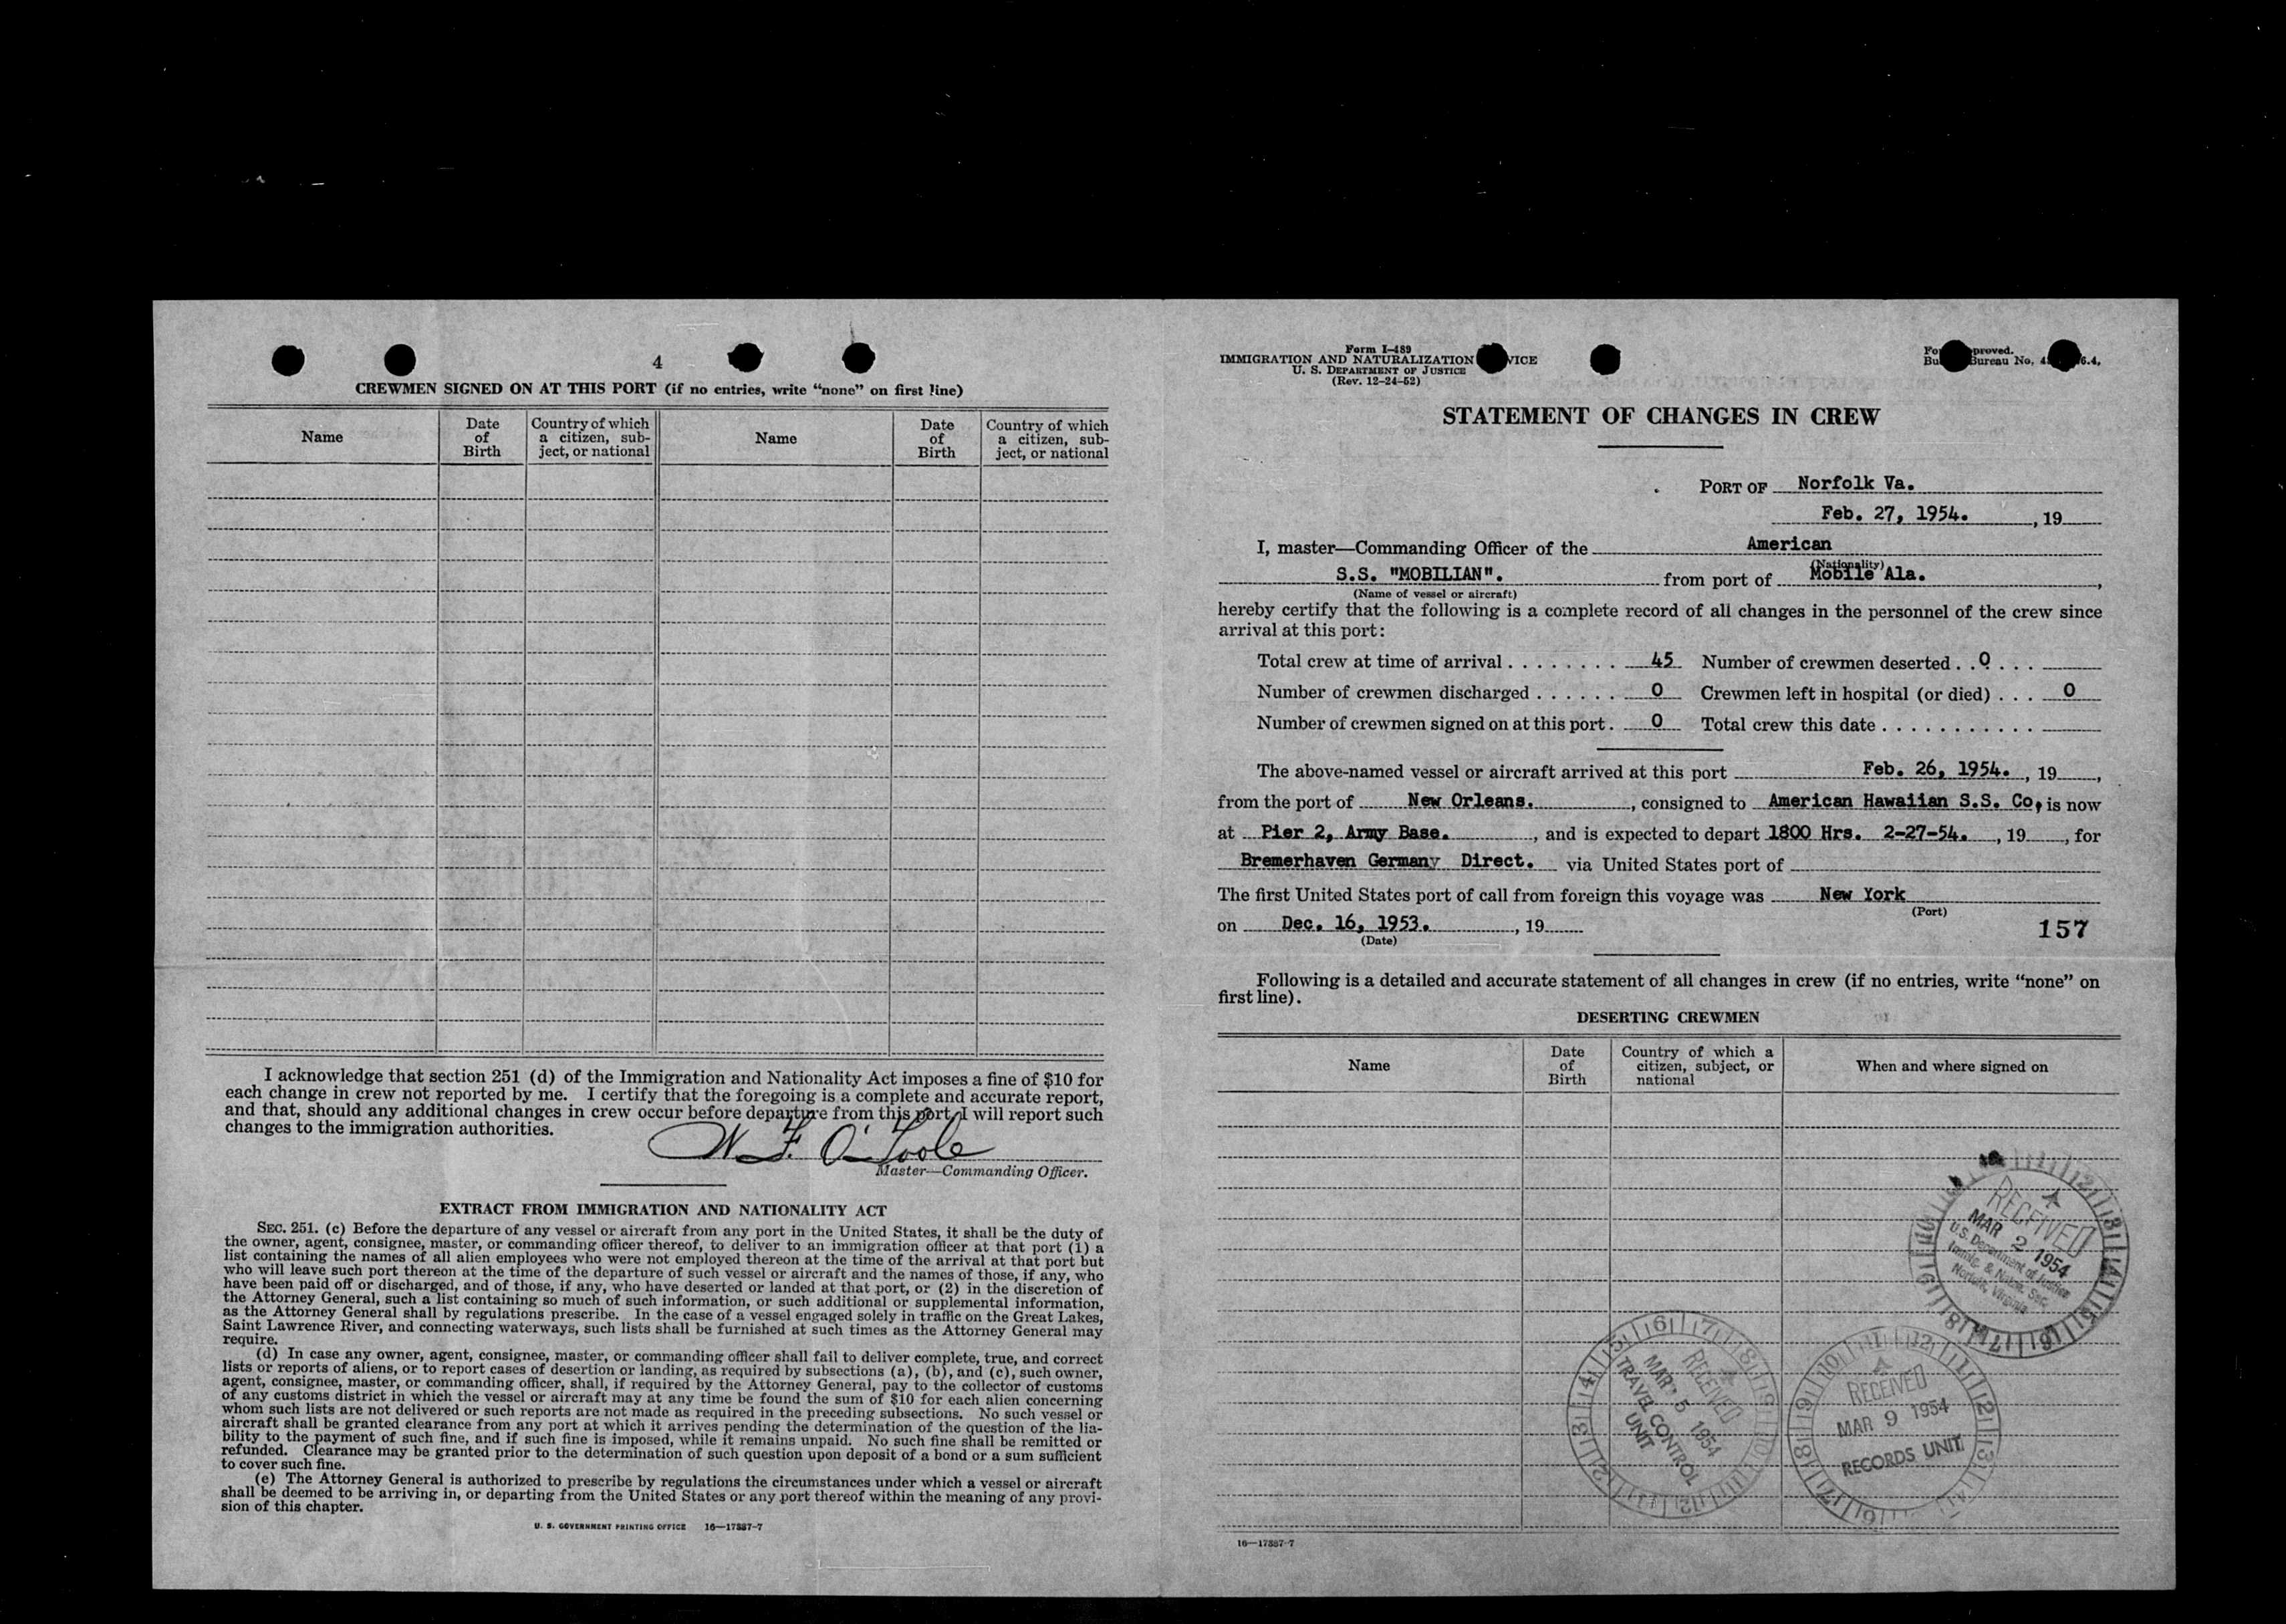 4
CREWMEN SIGNED ON AT THIS PORT (if no entries, write “none” on first line)
Name
Date of Birth
Country of which a citizen, sub-ject, or national
Name
Date of Birth
Country of which a citizen, sub-ject, or national
I acknowledge that section 251 (d) of the Immigration and Nationality Act imposes a fine of $10 for
each change in crew not reported by me. I certify that the foregoing is a complete and accurate report,
and that, should any additional changes in crew occur before departure from this port, I will report such
changes to the immigration authorities.
W. F. O'Toole
Master—Commanding Officer.
EXTRACT FROM IMMIGRATION AND NATIONALITY ACT
SEC. 251. (c) Before the departure of any vessel or aircraft from any port in the United States, it shall be the duty of
the owner, agent, consignee, master, or commanding officer thereof, to deliver to an immigration officer at that port (1) a
list containing the names of all alien employees who were not employed thereon at the time of the arrival at that port but
who will leave such port thereon at the time of the departure of such vessel or aircraft and the names of those, if any, who
have been paid off or discharged, and of those, if any, who have deserted or landed at that port, or (2) in the discretion of
the Attorney General, such a list containing so much of such information, or such additional or supplemental information,
as the Attorney General shall by regulations prescribe. In the case of a vessel engaged solely in traffic on the Great Lakes,
Saint Lawrence River, and connecting waterways, such lists shall be furnished at such times as the Attorney General may
require.
(d) In case any owner, agent, consignee, master, or commanding officer shall fail to deliver complete, true, and correct
lists or reports of aliens, or to report cases of desertion or landing, as required by subsections (a), (b), and (c), such owner,
agent, consignee, master, or commanding officer, shall, if required by the Attorney General, pay to the collector of customs
of any customs district in which the vessel or aircraft may at any time be found the sum of $10 for each alien concerning
whom such lists are not delivered or such reports are not made as required in the preceding subsections. No such vessel or
aircraft shall be granted clearance from any port at which it arrives pending the determination of the question of the lia-
bility to the payment of such fine, and if such fine is imposed, while it remains unpaid. No such fine shall be remitted or
refunded. Clearance may be granted prior to the determination of such question upon deposit of a bond or a sum sufficient
to cover such fine.
(e) The Attorney General is authorized to prescribe by regulations the circumstances under which a vessel or aircraft
shall be deemed to be arriving in, or departing from the United States or any port thereof within the meaning of any provi-
sion of this chapter.
U. S. GOVERNMENT PRINTING OFFICE 16—17887-7
Form I-489
IMMIGRATION AND NATURALIZATION VICE
U. S. DEPARTMENT OF JUSTICE
(Rev. 12-24-52)
Fo proved.
Bu Bureau No. 4 6.4.
STATEMENT OF CHANGES IN CREW
PORT OF Norfolk Va.
Feb. 27, 1954. , 19
I, master—Commanding Officer of the American
(Nationality)
S.S. "MOBILIAN". from port of Mobile Ala. ,
(Name of vessel or aircraft)
hereby certify that the following is a complete record of all changes in the personnel of the crew since
arrival at this port:
Total crew at time of arrival 45 Number of crewmen deserted 0
Number of crewmen discharged 0 Crewmen left in hospital (or died) 0
Number of crewmen signed on at this port 0 Total crew this date
The above-named vessel or aircraft arrived at this port Feb. 26, 1954. , 19 ,
from the port of New Orleans. , consigned to American Hawaiian S.S. Co, is now
at Pier 2, Army Base. , and is expected to depart 1800 Hrs. 2-27-54. , 19 , for
Bremerhaven Germany Direct. via United States port of
The first United States port of call from foreign this voyage was New York
(Port)
on Dec. 16, 1953. , 19
(Date)
157
Following is a detailed and accurate statement of all changes in crew (if no entries, write “none” on
first line).
DESERTING CREWMEN
Name
Date of Birth
Country of which a citizen, subject, or national
When and where signed on
RECEIVED
MAR 2 1954
U.S. Department of Justice
Immig. & Natzn. Ser.
Norfolk, Virginia
RECEIVED
MAR 5 1954
TRAVEL CONTROL
UNIT
RECEIVED
MAR 9 1954
RECORDS UNIT
16—17887-7